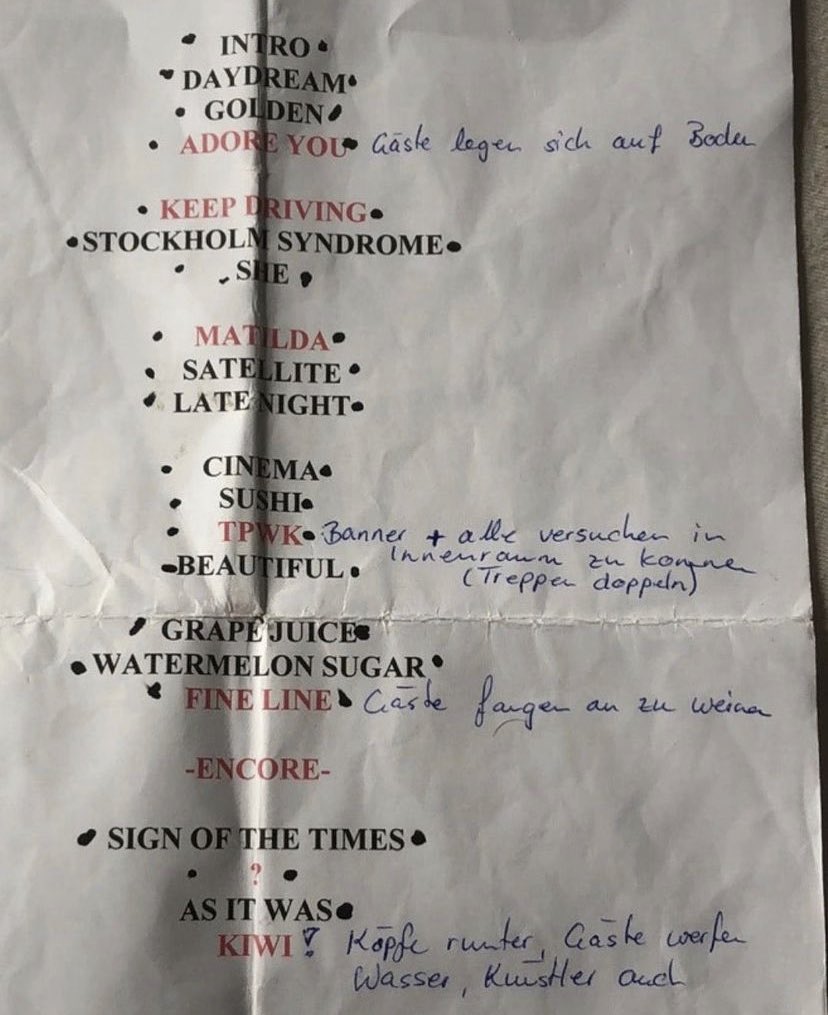 INTRO
DAYDREAM
GOLDEN
ADORE YOU Gäste legen sich auf Boden
KEEP DRIVING
STOCKHOLM SYNDROME
SHE
MATILDA
SATELLITE
LATE NIGHT
CINEMA
SUSHI
TPWK Banner + alle versuchen in
Innenraum zu kommen
BEAUTIFUL (Treppen doppeln)
GRAPE JUICE
WATERMELON SUGAR
FINE LINE Gäste fangen an zu weinen
-ENCORE-
SIGN OF THE TIMES
?
AS IT WAS
KIWI ! Köpfe runter, Gäste werfen
Wasser, Künstler auch